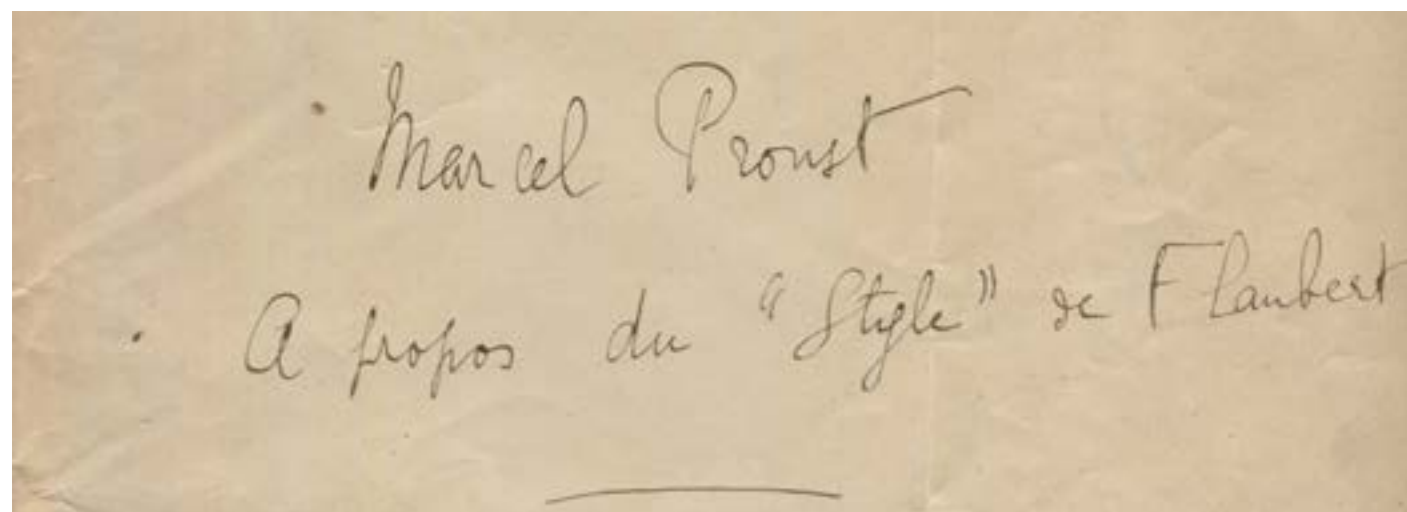 Marcel Proust
A propos du “Style” de Flaubert